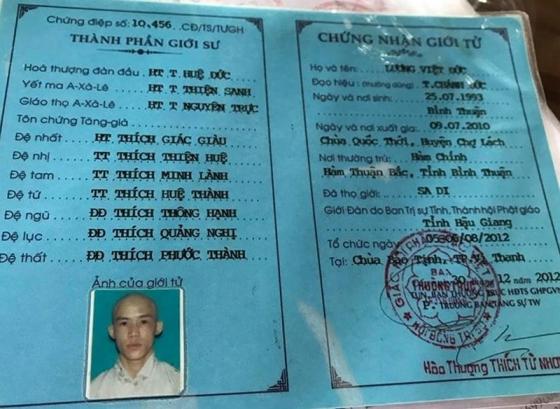 Chứng điệp số: 10.456.. CĐ/TS/TƯGH
THÀNH PHẦN GIỚI SƯ
Hoà thượng đàn đầu HT.T. HUỆ ĐỨC
Yết ma A-Xà-Lê HT.T THIỆN SANH
Giáo thọ A-Xà-Lê HT.T NGUYÊN TRỰC
Tôn chứng Tăng-già
Đệ nhất HT THÍCH GIÁC GIÀU
Đệ nhị TT THÍCH THIỆN HUỆ
Đệ tam TT THÍCH MINH LÀNH
Đệ tứ TT THÍCH HUỆ THÀNH
Đệ ngũ ĐĐ THÍCH THÔNG HẠNH
Đệ lục ĐĐ THÍCH QUẢNG NGHỊ
Đệ thất ĐĐ THÍCH PHƯỚC THÀNH
Ảnh của giới tử
CHỨNG NHẬN GIỚI TỬ
Họ và tên: LƯƠNG VIỆT ĐỨC
Đạo hiệu : (thường dùng) T. CHÁNH ĐỨC
Ngày và nơi sinh: 25.07.1993
Bình Thuận
Ngày và nơi xuất gia: 09.07.2010
Chùa Quốc Thới, Huyện Chợ Lách
Nơi thường trú: Hàm Chính
Hàm Thuận Bắc, Tỉnh Bình Thuận
Đã thọ giới: SA DI
Giới Đàn do Ban Trị sự Tỉnh, Thành hội Phật giáo
Tỉnh Hậu Giang
Tổ chức ngày 05-06/08/2012
Tại: Chùa Bảo Tịnh, TP.Vị Thanh
12 năm 2012
BAN
THƯỜNG TRỰC
P. TRƯỞNG BAN TĂNG SỰ TW
Hòa Thượng THÍCH TỪ NHƠN